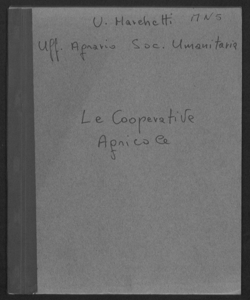 U. Marchetti MNS
Uff. Agrario Soc. Umanitaria
Le Cooperative
Agricole